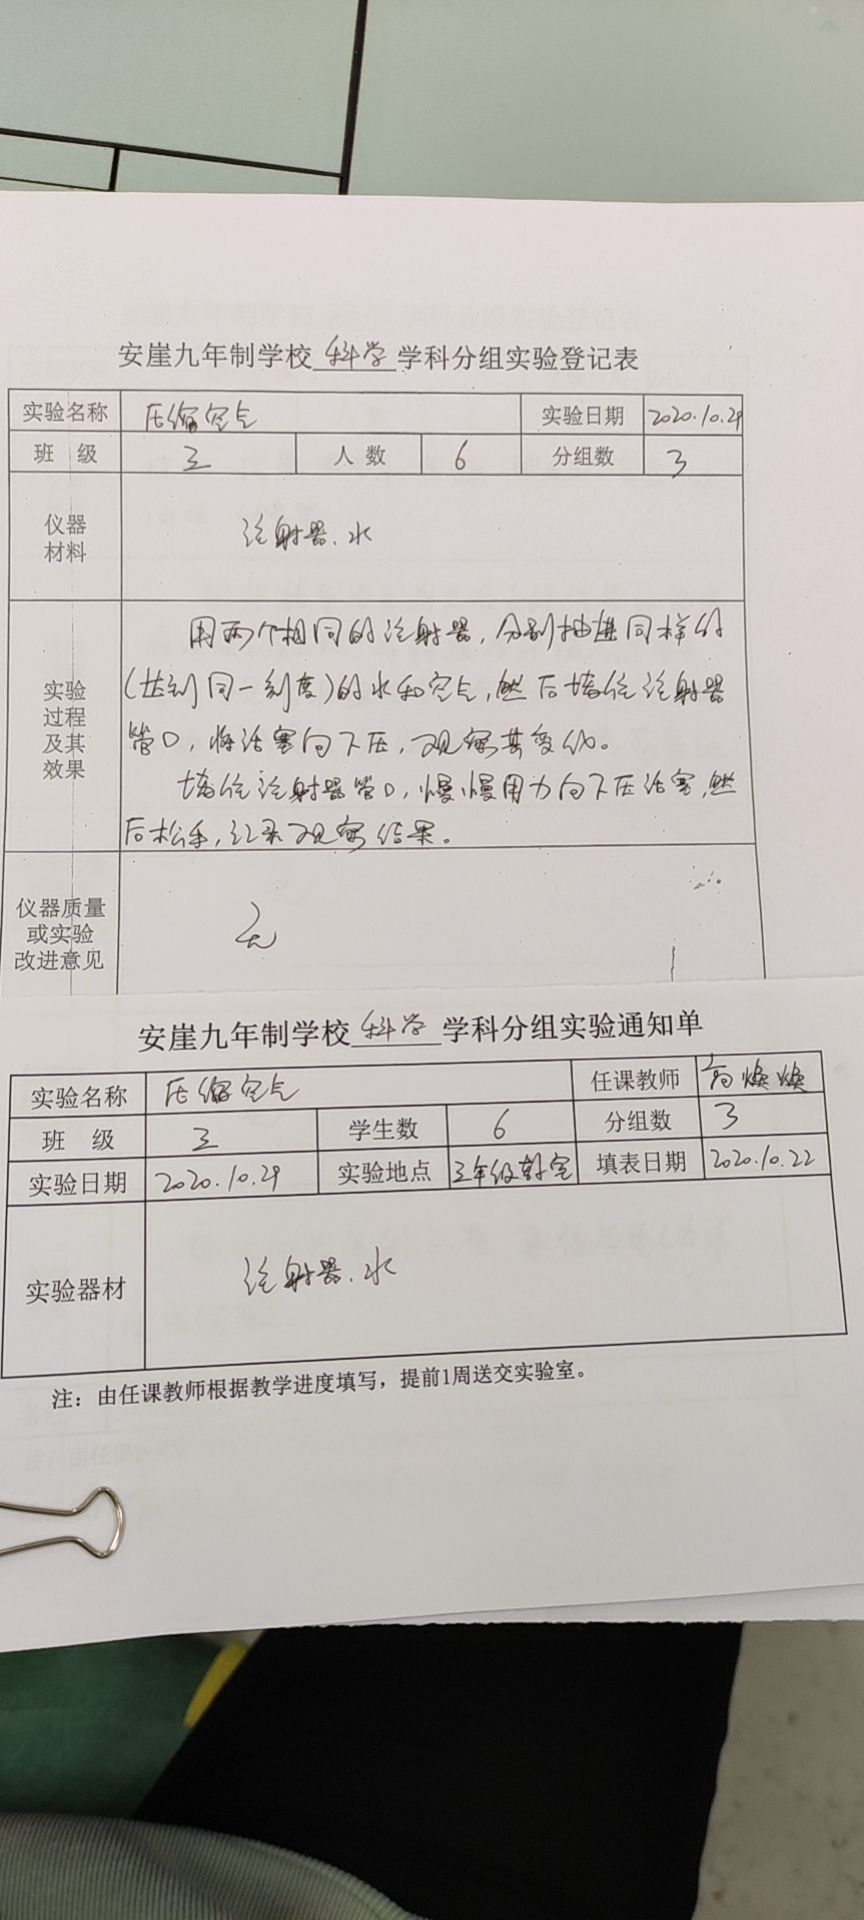 安崖九年制学校 科学 学科分组实验登记表
实验名称 压缩空气 实验日期 2020.10.29
班 级 三 人 数 6 分组数 3
仪器
材料
注射器、水
用两个相同的注射器,分别抽进同样的
(达到同一刻度)的水和空气,然后堵住注射器
管口,将活塞向下压,观察其变化。
堵住注射器管口,慢慢用力向下压活塞,然
后松手,记录观察结果。
实验
过程
及其
效果
仪器质量
或实验
改进意见
无
安崖九年制学校 科学 学科分组实验通知单
实验名称 压缩空气 任课教师 高焕焕
班 级 三 学生数 6 分组数 3
实验日期 2020.10.29 实验地点 三年级教室 填表日期 2020.10.22
实验器材 注射器、水
注:由任课教师根据教学进度填写,提前1周送交实验室。